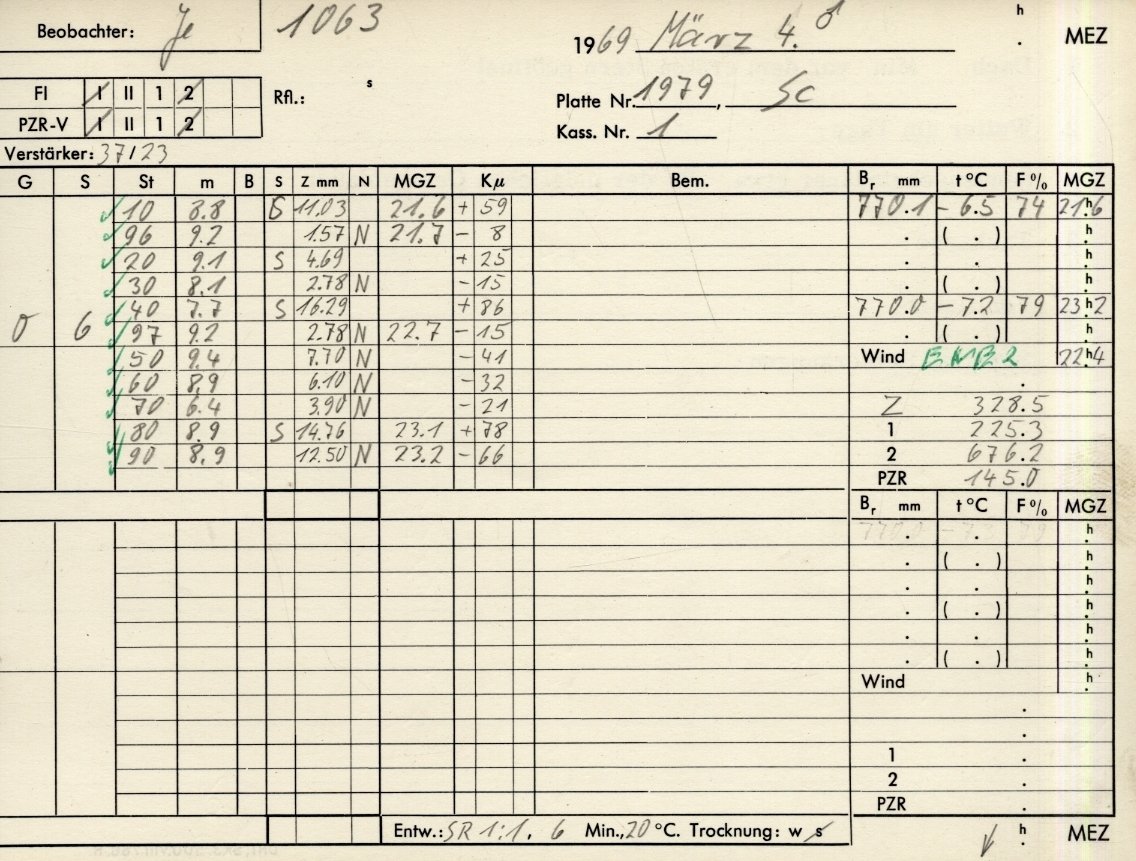 Beobachter: Je 1063 1969 März 4. ♂ h . MEZ
FI I II 1 2 Rfl.: s Platte Nr. 1979, Sc
PZR-V I II 1 2 Kass. Nr. 1
Verstärker: 37/23
G S St m B S Z mm N MGZ Kμ Bem. Br mm t °C F % MGZ
10 8.8 S 11.03 21.6 + 59 770.1 - 6.5 74 21h.6
96 9.2 1.57 N 21.7 - 8 . ( . ) h.
20 9.1 S 4.69 + 25 . . h.
30 8.1 2.78 N - 15 . ( . ) h.
40 7.7 S 16.29 + 86 770.0 - 7.2 79 23h.2
0 6 97 9.2 2.78 N 22.7 - 15 . ( . ) h.
50 9.4 7.70 N - 41 Wind ENE 2 22h.4
60 8.9 6.10 N - 32 .
70 6.4 3.90 N - 21 Z 328.5
80 8.9 S 14.76 23.1 + 78 1 225.3
90 8.9 12.50 N 23.2 - 66 2 676.2
PZR 145.0
Br mm t °C F % MGZ
770.0 - 7.3 79 h.
. ( . ) h.
. . h.
. ( . ) h.
. . h.
. ( . ) h.
Wind h.
.
.
1 .
2 .
PZR .
Entw.: SR 1:1, 6 Min., 20 °C. Trocknung: w s h . MEZ